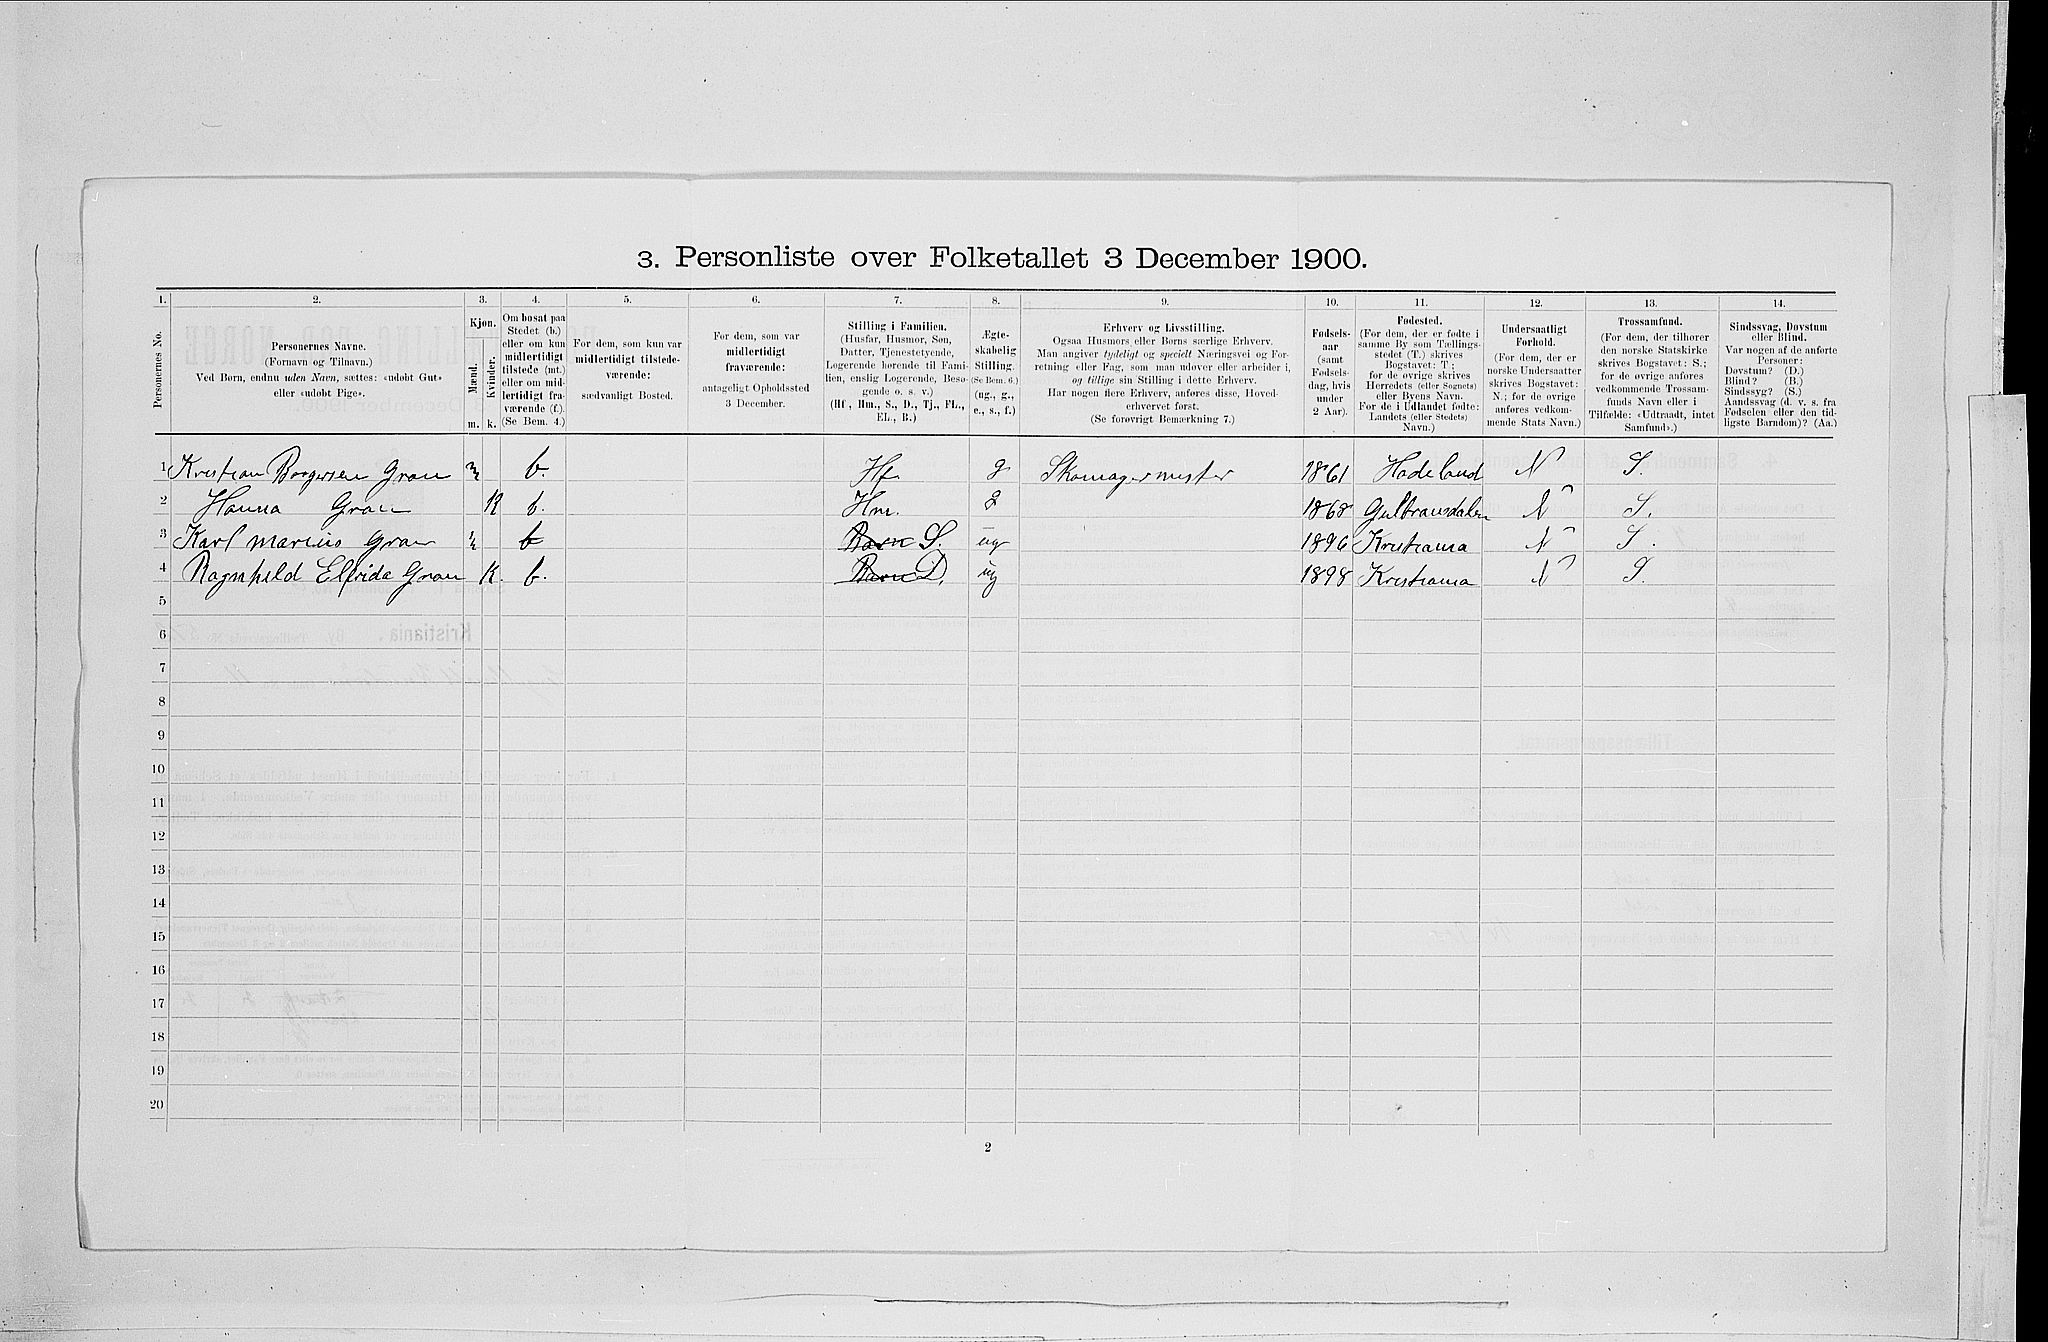 3. Personliste over Folketallet 3 December 1900.
1. 2. 3. 4. 5. 6. 7. 8. 9. 10. 11. 12. 13. 14.
Personernes No.
Personernes Navne.
(Fornavn og Tilnavn.)
Ved Børn, endnu uden Navn, sættes: «udøbt Gut»
eller «udøbt Pige».
Kjøn.
Mænd.
Kvinder.
m. k.
Om bosat paa
Stedet (b.)
eller om kun
midlertidigt
tilstede (mt.)
eller om mid-
lertidigt fra-
værende (f.)
(Se Bem. 4.)
For dem, som kun var
midlertidigt tilstede-
værende:
sædvanligt Bosted.
For dem, som var
midlertidigt
fraværende:
antageligt Opholdssted
3 December.
Stilling i Familien.
(Husfar, Husmor, Søn,
Datter, Tjenestetyende,
Logerende hørende til Fami-
lien, enslig Logerende, Besø-
gende o. s. v.)
(Hf., Hm., S., D., Tj., FL.,
EL., B.)
Ægte-
skabelig
Stilling.
(Se Bem. 6.)
(ug., g.,
e., s., f.)
Erhverv og Livsstilling.
Ogsaa Husmors eller Børns særlige Erhverv.
Man angiver tydeligt og specielt Næringsvei og For-
retning eller Fag, som man udøver eller arbeider i,
og tillige sin Stilling i dette Erhverv.
Har nogen flere Erhverv, anføres disse, Hoved-
erhvervet først.
(Se forøvrigt Bemærkning 7.)
Fødsels-
aar
(samt
Fødsels-
dag, hvis
under
2 Aar).
Fødested.
(For dem, der er fødte i
samme By som Tællings-
stedet (T.) skrives
Bogstavet: T;
for de øvrige skrives
Herredets (eller Sognets)
eller Byens Navn.
For de i Udlandet fødte:
Landets (eller Stedets)
Navn.)
Undersaatligt
Forhold.
(For dem, der er
norske Undersaatter
skrives Bogstavet:
N.; for de øvrige
anføres vedkom-
mende Stats Navn.)
Trossamfund.
(For dem, der tilhører
den norske Statskirke
skrives Bogstavet: S.;
for de øvrige anføres
vedkommende Trossam-
funds Navn eller i
Tilfælde: «Udtraadt, intet
Samfund».)
Sindssvag, Døvstum
eller Blind.
Var nogen af de anførte
Personer:
Døvstum? (D.)
Blind? (B.)
Sindssyg? (S.)
Aandssvag (d. v. s. fra
Fødselen eller den tid-
ligste Barndom)? (Aa.)
1 Kristian Borgersen Gran m b. Hf g Skomagermester 1861 Hadeland N S.
2 Hanna Gran K b. Hm. g 1868 Gulbransdalen N S.
3 Karl Marius Gran m b Barn S. ug 1896 Kristiania N S.
4 Ragnhild Elfrida Gran K. b. Barn D. ug 1898 Kristiania N S.
5
6
7
8
9
10
11
12
13
14
15
16
17
18
19
20
2